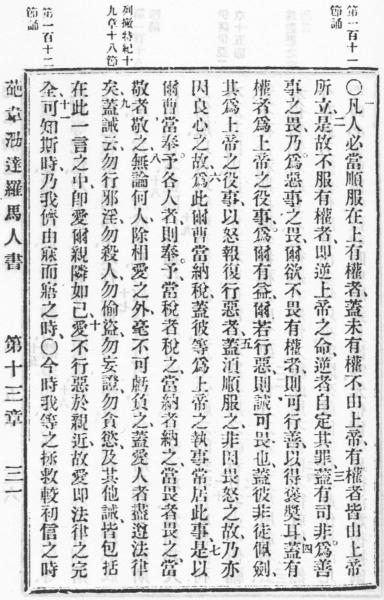 第一百十一
節誦
列撒特紀十
九章十八節
第一百十二
節誦
一
○凡人必當順服在上有權者、蓋未有權不由上帝、有權者皆由上帝
二 三
所立、是故不服有權者、即逆上帝之命、逆者自定其罪、蓋有司非爲善
四
事之畏、乃爲惡事之畏、爾欲不畏有權者、則可行善以得褒奬耳、蓋有
權者爲上帝之役事、爲爾有益、爾若行惡、則誠可畏也、蓋彼非徒佩劍、
五
其爲上帝之役事、以怒報復行惡者、蓋須順服之、非因畏怒之故、乃亦
六 七
因良心之故、爲此爾曹當納稅、蓋彼等爲上帝之執事、當居此事、是以
爾曹當奉予各人者則奉予、當稅者稅之、當納者納之、當畏者畏之、當
八
敬者敬之、無論何人、除相愛之外、毫不可虧負之、蓋愛人者盡遵法律
九
矣、蓋誡云、勿行邪淫、勿殺人、勿偷盜、勿妄證、勿貪慾、及其他誡、皆包括
十
在此一言之中、即愛爾親隣如己、愛不行惡於親近、故愛即法律之完
十一
全、可知斯時乃我儕由寐而寤之時、○今時我等之拯救、較初信之時
葩韋泐達羅馬人書 第十三章 三六